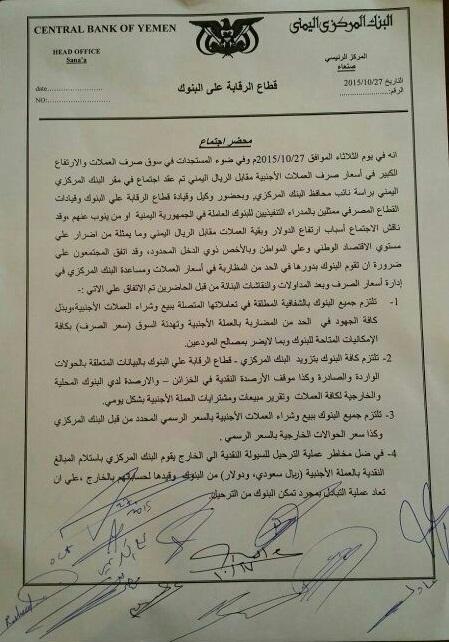 CENTRAL BANK OF YEMEN
البنك المركزي اليمني
HEAD OFFICE
Sana'a
المركز الرئيسي
صنعاء
date
NO:
قطاع الرقابة على البنوك
التاريخ 2015/10/27
الرقم:
محضر اجتماع
انه في يوم الثلاثاء الموافق 2015/10/27م وفي ضوء المستجدات في سوق صرف العملات والارتفاع
الكبير في أسعار صرف العملات الأجنبية مقابل الريال اليمني تم عقد اجتماع في مقر البنك المركزي
اليمني براسة نائب محافظ البنك المركزي, وبحضور وكيل وقيادة قطاع الرقابة علي البنوك وقيادات
القطاع المصرفي ممثلين بالمدراء التنفيذيين للبنوك العاملة في الجمهورية اليمنية او من ينوب عنهم ,وقد
ناقش الاجتماع أسباب ارتفاع الدولار وبقية العملات مقابل الريال اليمني وما يمثلة من اضرار علي
مستوي الاقتصاد الوطني وعلي المواطن وبالأخص ذوي الدخل المحدود، وقد اتفق المجتمعون علي
ضرورة ان تقوم البنوك بدورها في الحد من المظاربة في أسعار العملات ومساعدة البنك المركزي في
إدارة أسعار الصرف وبعد المداولات والنقاشات البناتة من قبل الحاضرين تم الاتفاق علي الاتي :-
1- تلتزم جميع البنوك بالشفافية المطلقة في تعاملاتها المتصلة ببيع وشراء العملات الأجنبية،وبذل
كافة الجهود في الحد من المضاربة بالعملة الأجنبية وتهدئة السوق (سعر الصرف) بكافة
الإمكانيات المتاحة للبنوك وبما لايضر بمصالح المودعين.
2- تلتزم كافة البنوك بتزويد البنك المركزي - قطاع الرقابة علي البنوك بالبيانات المتعلقة بالحولات
الواردة والصادرة وكذا موقف الأرصدة النقدية في الخزائن – والارصدة لدي البنوك المحلية
والخارجية لكافة العملات وتقرير مبيعات ومشتريات العملة الأجنبية بشكل يومي.
3- تلتزم جميع البنوك ببيع وشراء العملات الأجنبية بالسعر الرسمي المحدد من قبل البنك المركزي
وكذا سعر الحوالات الخارجية بالسعر الرسمي .
4- في ضل مخاطر عملية الترحيل للسيولة النقدية الي الخارج يقوم البنك المركزي باستلام المبالغ
النقدية بالعملة الأجنبية (ريال سعودي، ودولار) من البنوك وقيدها لحساباتهم بالخارج ,علي ان
تعاد عملية التبادل بمجرد تمكن البنوك من الترحيل